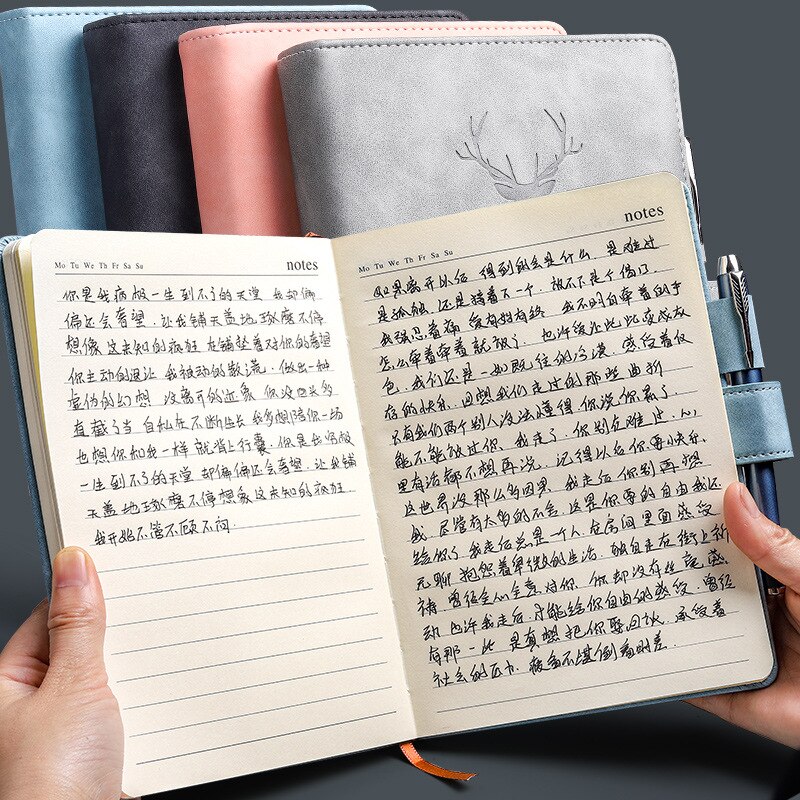 Mo Tu We Th Fr Sa Su notes
你是我病极一生到不了的天堂 我却偏
偏还会奢望 让我铺天盖地琢磨不停
想像这未知的疯狂 走铺垫着对你的奢望
你主动的退让 我被动的散谎 做出一种
虚伪的幻想 没离开的迹象 你没回头多
直截了当 自私在不断生长 我多想陪你一场
也想你和我一样 就背上行囊 你是我穷极
一生到不了的天堂 却偏偏还会奢望 让我铺
天盖地琢磨不停想象这未知的疯狂
我开始不管不顾不问
Mo Tu We Th Fr Sa Su notes
如果离开以后 得到的会是什么 是难过
是孤独 还是猜着不一个 放不下是个借口
我强忍着痛 我不明白牵着的手
怎么牵着牵着就放了 也许彼此
我们还是一如既往的 感受着
的快乐 回想我们走过的那些曲折
只有我们两个别人没法懂得 你说你累了
能不能放过你 我走了 你别在难过 人
里有话都不想再说 记得以后你要快乐
这世界没那么多因果 我走后 你别再想
我 尽管有太多的不舍 这是你要的自由我还
给你了 我走后总是一个人在房间里面感受
无聊 抱怨着卑微的生活 独自走在街上
曾经全心全意对你 你却没有
动 也许我走后 才能给你自由的感受 曾经
有那一些 是真想把你 承受着
社会的压力 疲惫不堪倒着时差